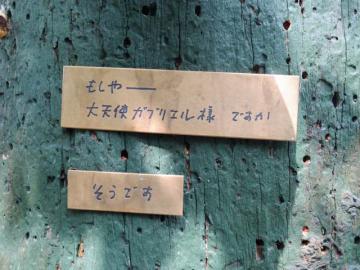 もしや――
大天使ガブリエル様 ですか
そうです